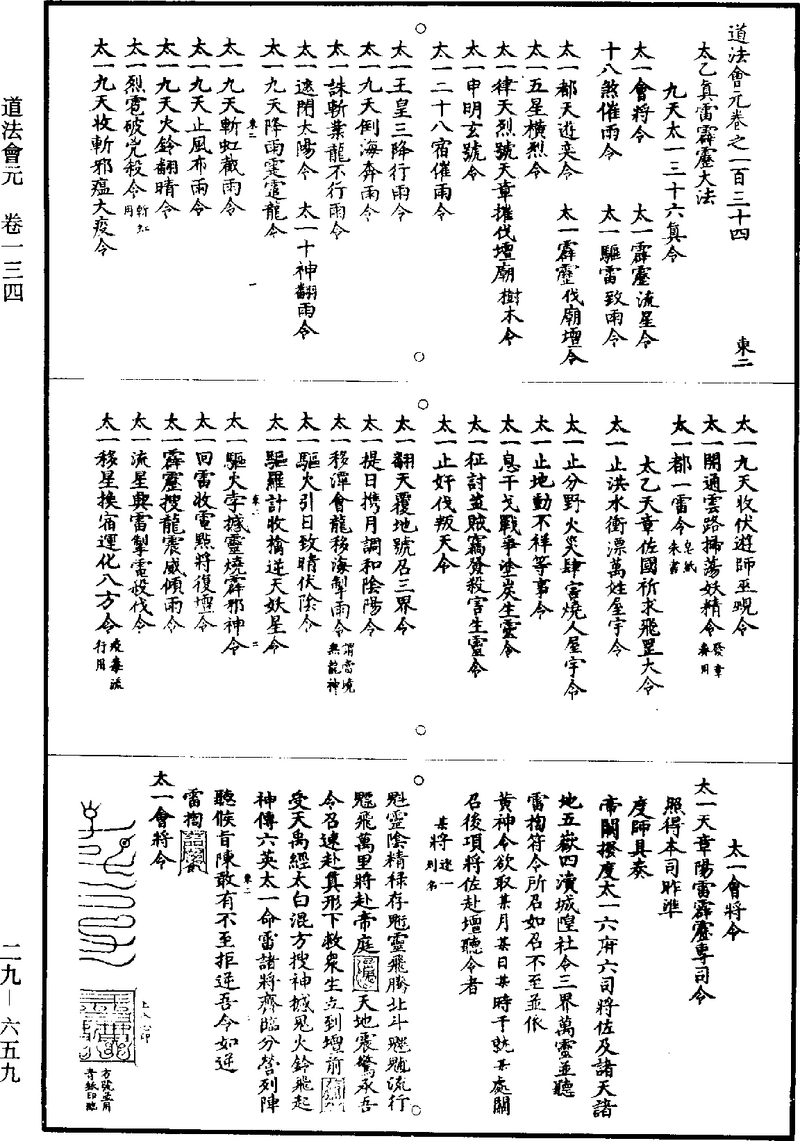 道法會元卷之一百三十四 東二
太乙真雷霹靂大法
九天太一三十六真令
太一會將令 太一霹靂流星令
十八煞催雨令 太一驅雷致雨令
太一都天遊奕令 太一霹靂伐廟壇令
太一五星橫烈令
太一律天烈號天章摧伐壇廟樹木令
太一申明玄號令
太一二十八宿催雨令
太一王皇三降行雨令
太一九天倒海奔雨令
太一誅斬業龍不行雨令
太一遮閉太陽令 太一十神翻雨令
太一九天降雨霆龍令
太一九天斬虹截雨令
太一九天止風布雨令
太一九天火鈴翻晴令
太一烈雹破党殺令斬虹用
太一九天收斬邪瘟大疫令
太一九天收伏遊師巫覡令
太一開通雲路掃蕩妖精令發章奏用
太一都一雷令皂紙朱書
太乙天章佐國祈求飛罡大令
太一止洪水衝漂萬姓屋宇令
太一止分野火災肆害燒人屋宇令
太一止地動不祥等事令
太一息干戈戰爭塗炭生靈令
太一征討盜賊竊發殺害生靈令
太一止奸伐叛天令
太一翻天覆地號召三界令
太一提日攜月調和陰陽令
太一移潭會龍移海掣雨令謂當境無龍神
太一驅火引日致晴伏陰令
太一驅羅計收擒逆天妖星令
太一驅火孛撼靈燒霹邪神令
太一回雷收電點將復壇令
太一霹靂搜龍震威傾雨令
太一流星興雷掣電殺伐令
太一移星換宿運化八方令疫毒流行用
太一會將令
太一天章陽雷霹靂專司令
照得本司昨準
度師具奏
帝闕撥度太一六府六司將佐及諸天諸
地五嶽四瀆城隍社令三界萬靈並聽
雷𢫬符令所召如召不至並依
黃神令欲取某月某日某時于就某處關
召後項將佐赴壇聽令者
某將逐一列名
魁靈陰精祿存魁靈飛騰北斗流行
飛萬里將赴帝庭天地震驚承吾
令召速赴真形下救衆生立到壇前
受天禹經太白混方搜神撼鬼火鈴飛起
神傳六英太一命雷諸將齊臨分營列陣
聽候旨陳敢有不至拒逆吾令如逆
雷
太一會將令
道法會元 卷一三四
二九—六五九